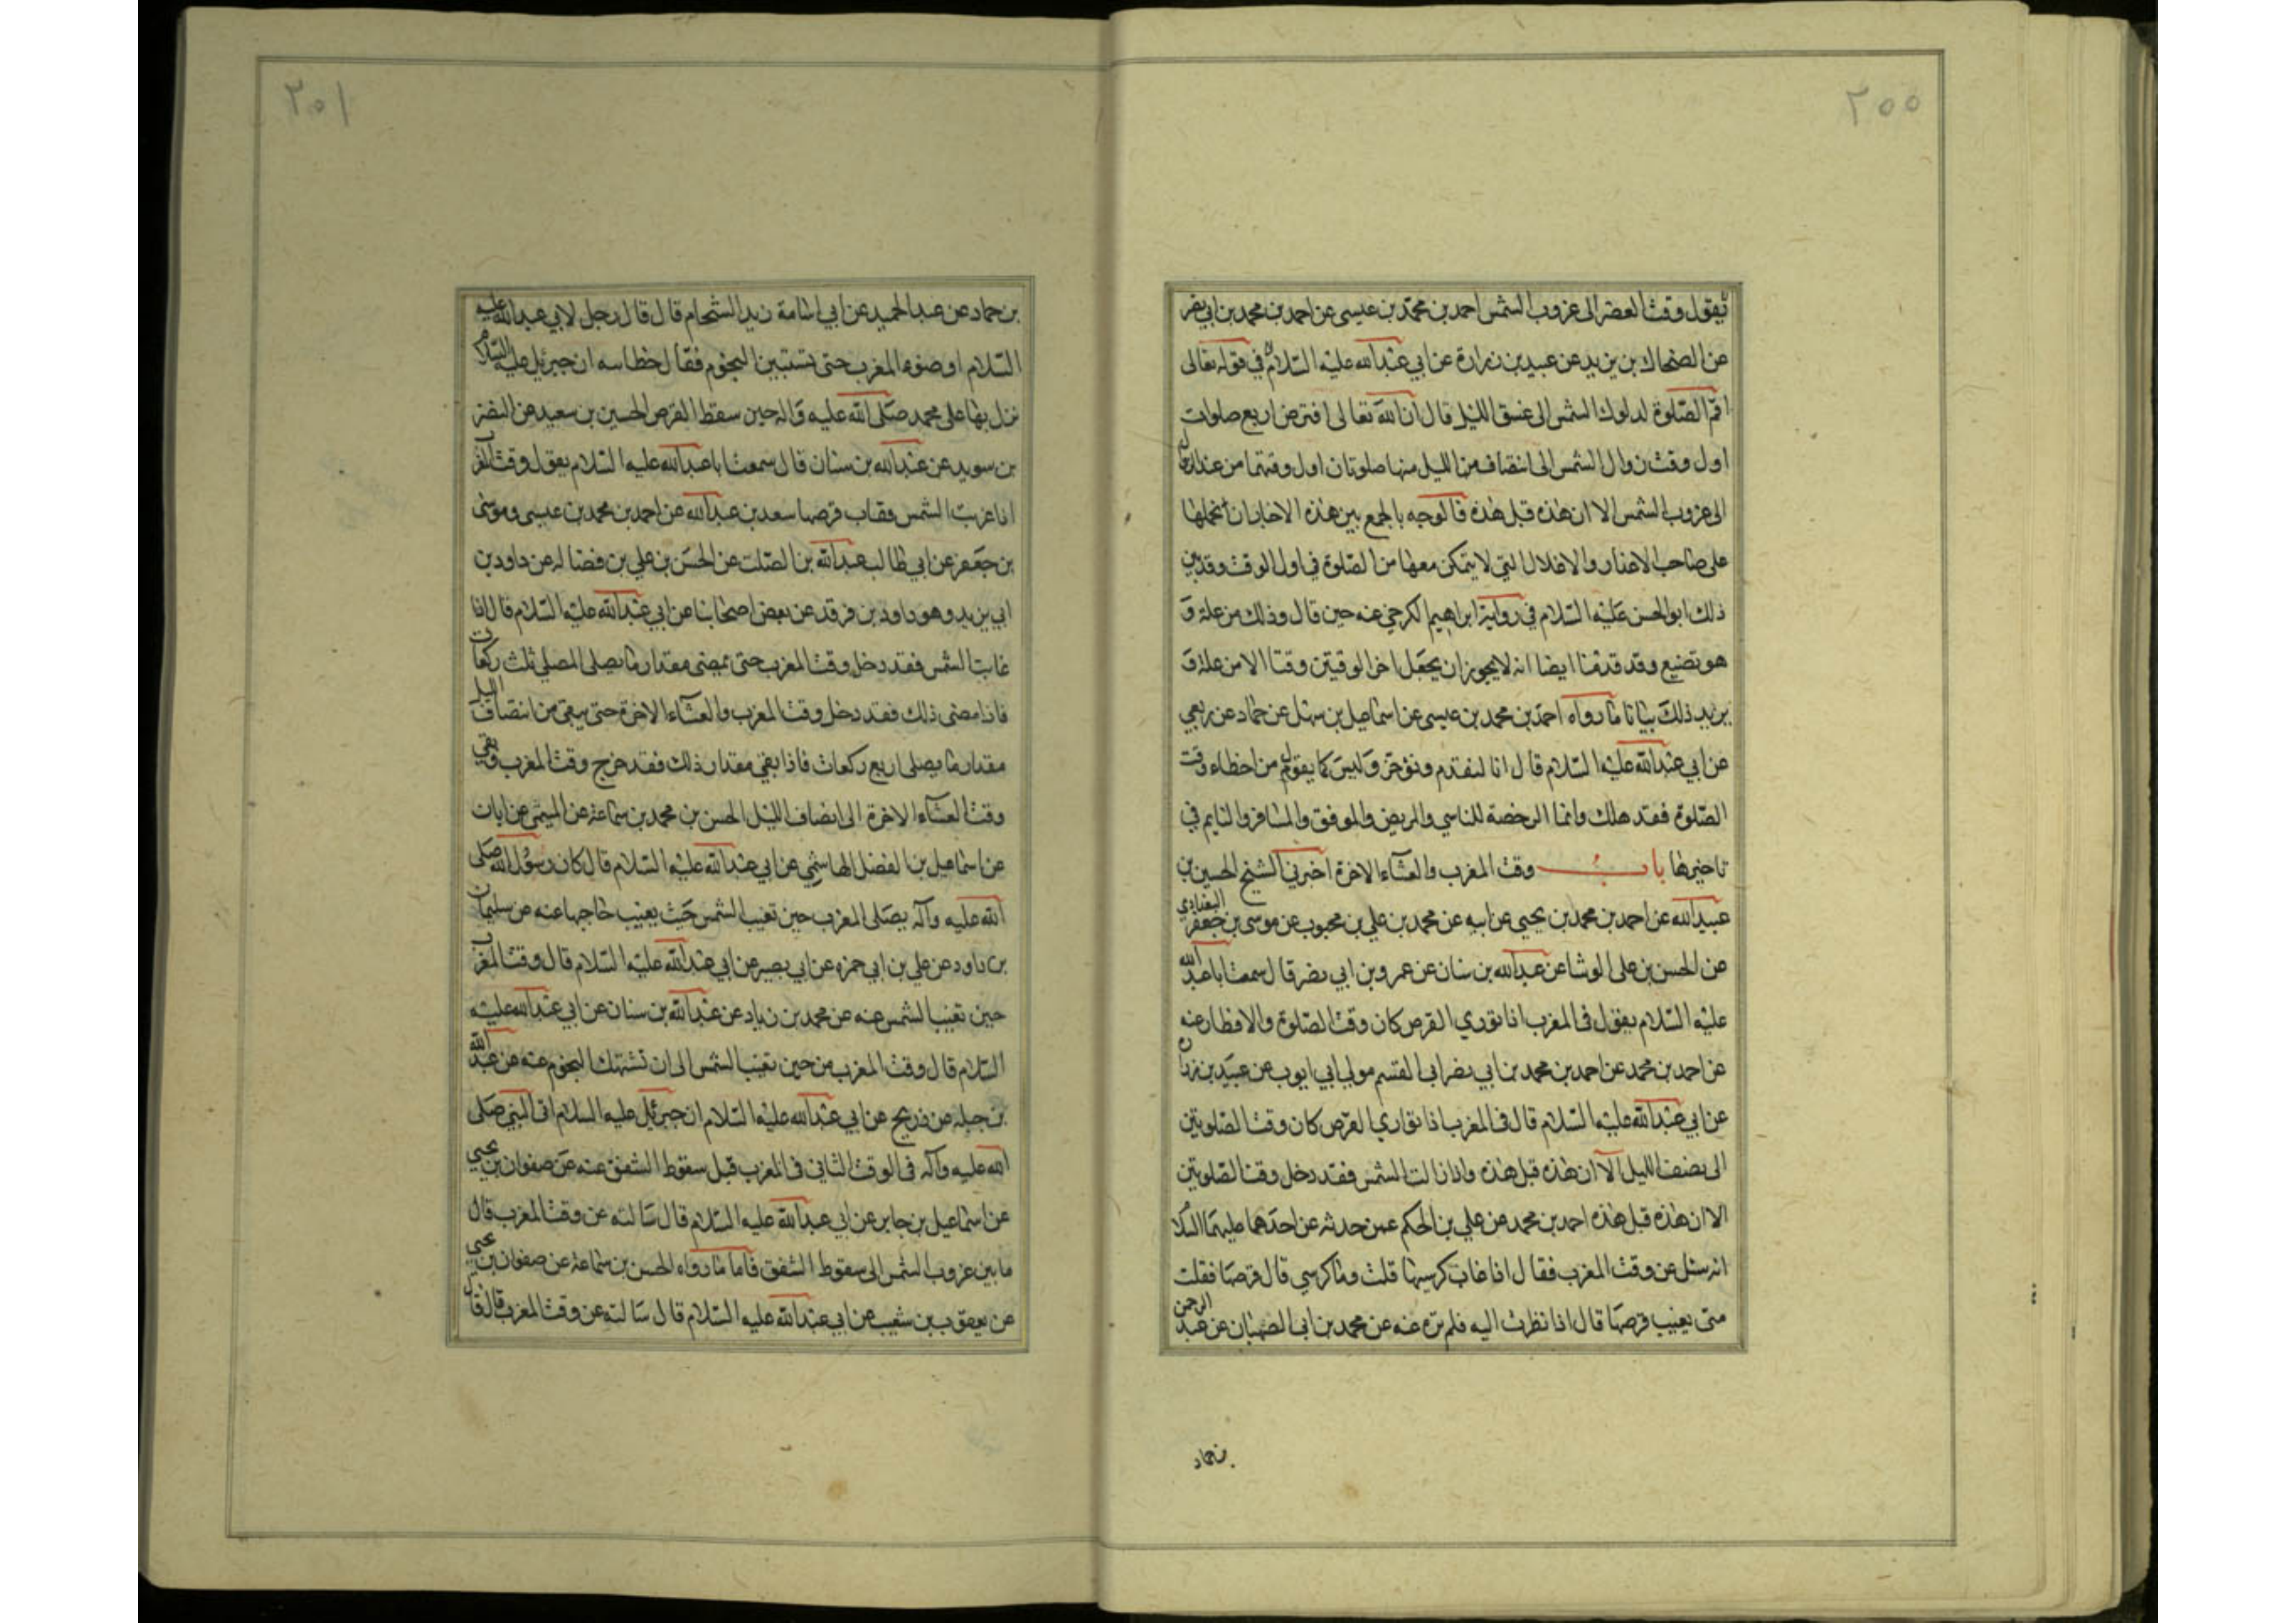 ٢٠٠
يقول وقت العصر الى غروب الشمس احمد بن محمد بن عيسى عن احمد بن محمد بن ابي نصر
عن الضحاك بن يزيد عن عبيد بن زرارة عن ابي عبدالله عليه السلام في قوله تعالى
اقم الصلوة لدلوك الشمس الى غسق الليل قال ان الله تعالى افترض اربع صلوات
اول وقت زوال الشمس الى انتصاف من الليل منها صلوتان اول وقتهما من عند زوال
الى غروب الشمس الا ان هذه قبل هذه فالوجه بالجمع بين هذه الاخبار ان نحملها
على صاحب الاعذار والاعلال التي لا يتمكن معها من الصلوة في اول الوقت وقد بين
ذلك ابو الحسن عليه السلام في رواية ابراهيم الكرخي عنه حين قال وذلك من علة و
هو تضيع وقد قدمنا ايضا انه لا يجوز ان يجعل اخر الوقتين وقتا الا من علة و
يزيد ذلك بيانا ما رواه احمد بن محمد بن عيسى عن اسماعيل بن سهل عن حماد عن ربعي
عن ابي عبدالله عليه السلام قال انا لنقدم ونؤخر وليس كما يقول من اخطاء وقت
الصلوة فقد هلك وانما الرخصة للناسي والمريض والموفق والمسافر والنايم في
تاخيرها باب وقت المغرب والعشاء الاخرة اخبرني الشيخ الحسين بن
عبيد الله عن احمد بن محمد بن يحيى عن ابيه عن محمد بن علي بن محبوب عن موسى بن جعفر البغدادي
عن الحسن بن على الوشا عن عبدالله بن سنان عن عمرو بن ابي نصر قال سمعت ابا عبدالله
عليه السلام يقول فى المغرب اذا توري القرص كان وقت الصلوة والافطار عنه
عن احمد بن محمد عن احمد بن محمد بن ابي نصر ابى القسم مولى ابي ايوب عن عبيد بن زرارة
عن ابي عبدالله عليه السلام قال فى المغرب اذا تواري القرص كان وقت الصلوتين
الى نصف الليل الا ان هذه قبل هذه واذا زالت الشمس فقد دخل وقت الصلوتين
الا ان هذه قبل هذه احمد بن محمد عن علي بن الحكم عمن حدثه عن احدهما عليهما السلا
انه سئل عن وقت المغرب فقال اذا غاب كرسيها قلت وما كرسي قال قرصها فقلت
متى يغيب قرصها قال اذا نظرت اليه فلم تره عنه عن محمد بن ابى الصهبان عن عبد الرحمن
بن حماد
٢٠١
بن حماد عن عبد الحميد عن ابي اسامة زيد الشحام قال قال رجل لابي عبدالله عليه
السلام او صنوه المغرب حتى تستبين النجوم فقال خطاسه ان جبرئيل عليه السلام
نزل بها على محمد صلى الله عليه واله حين سقط القرص الحسين بن سعيد عن النضر
بن سويد عن عبدالله بن سنان قال سمعت ابا عبدالله عليه السلام يقول وقت المغرب
اذا غربت الشمس فغاب قرصها سعد بن عبدالله عن احمد بن محمد بن عيسى وموسى
بن جعفر عن ابي طالب عبدالله بن الصلت عن الحسن بن علي بن فضال عن داود بن
ابي يزيد وهو داود بن فرقد عن بعض اصحابنا عن ابي عبدالله عليه السلام قال اذا
غابت الشمس فقد دخل وقت المغرب حتى يمضى مقدار ما يصلى المصلي ثلث ركعات
فاذا مضى ذلك فقد دخل وقت المغرب والعشاء الاخرة حتى يبقى من انتصاف الليل
مقدار ما يصلى اربع ركعات فاذا بقي مقدار ذلك فقد خرج وقت المغرب وبقي
وقت العشاء الاخرة الى انتصاف الليل الحسن بن محمد بن سماعة عن الميثمي عن ابان
عن اسماعيل بن الفضل الهاشمي عن ابي عبدالله عليه السلام قال كان رسول الله صلى
الله عليه وآله يصلى المغرب حين تغيب الشمس حيث يغيب حاجبها عنه عن سليمان
بن داود عن علي بن ابي حمزه عن ابي بصير عن ابي عبدالله عليه السلام قال وقت المغرب
حين تغيب الشمس عنه عن محمد بن زياد عن عبدالله بن سنان عن ابي عبدالله عليه
السلام قال وقت المغرب من حين تغيب الشمس الى ان تشتبك النجوم عنه عن عبدالله
بن جبله عن ذريح عن ابي عبدالله عليه السلام ان جبرئيل عليه السلام اتى النبي صلى
الله عليه وآله فى الوقت الثانى فى المغرب قبل سقوط الشفق عنه عن صفوان بن يحيى
عن اسماعيل بن جابر عن ابي عبدالله عليه السلام قال سالته عن وقت المغرب قال
ما بين غروب الشمس الى سقوط الشفق فاما ما رواه الحسن بن سماعة عن صفوان بن يحيى
عن يعقوب بن شعيب عن ابي عبدالله عليه السلام قال سالته عن وقت المغرب قال قال